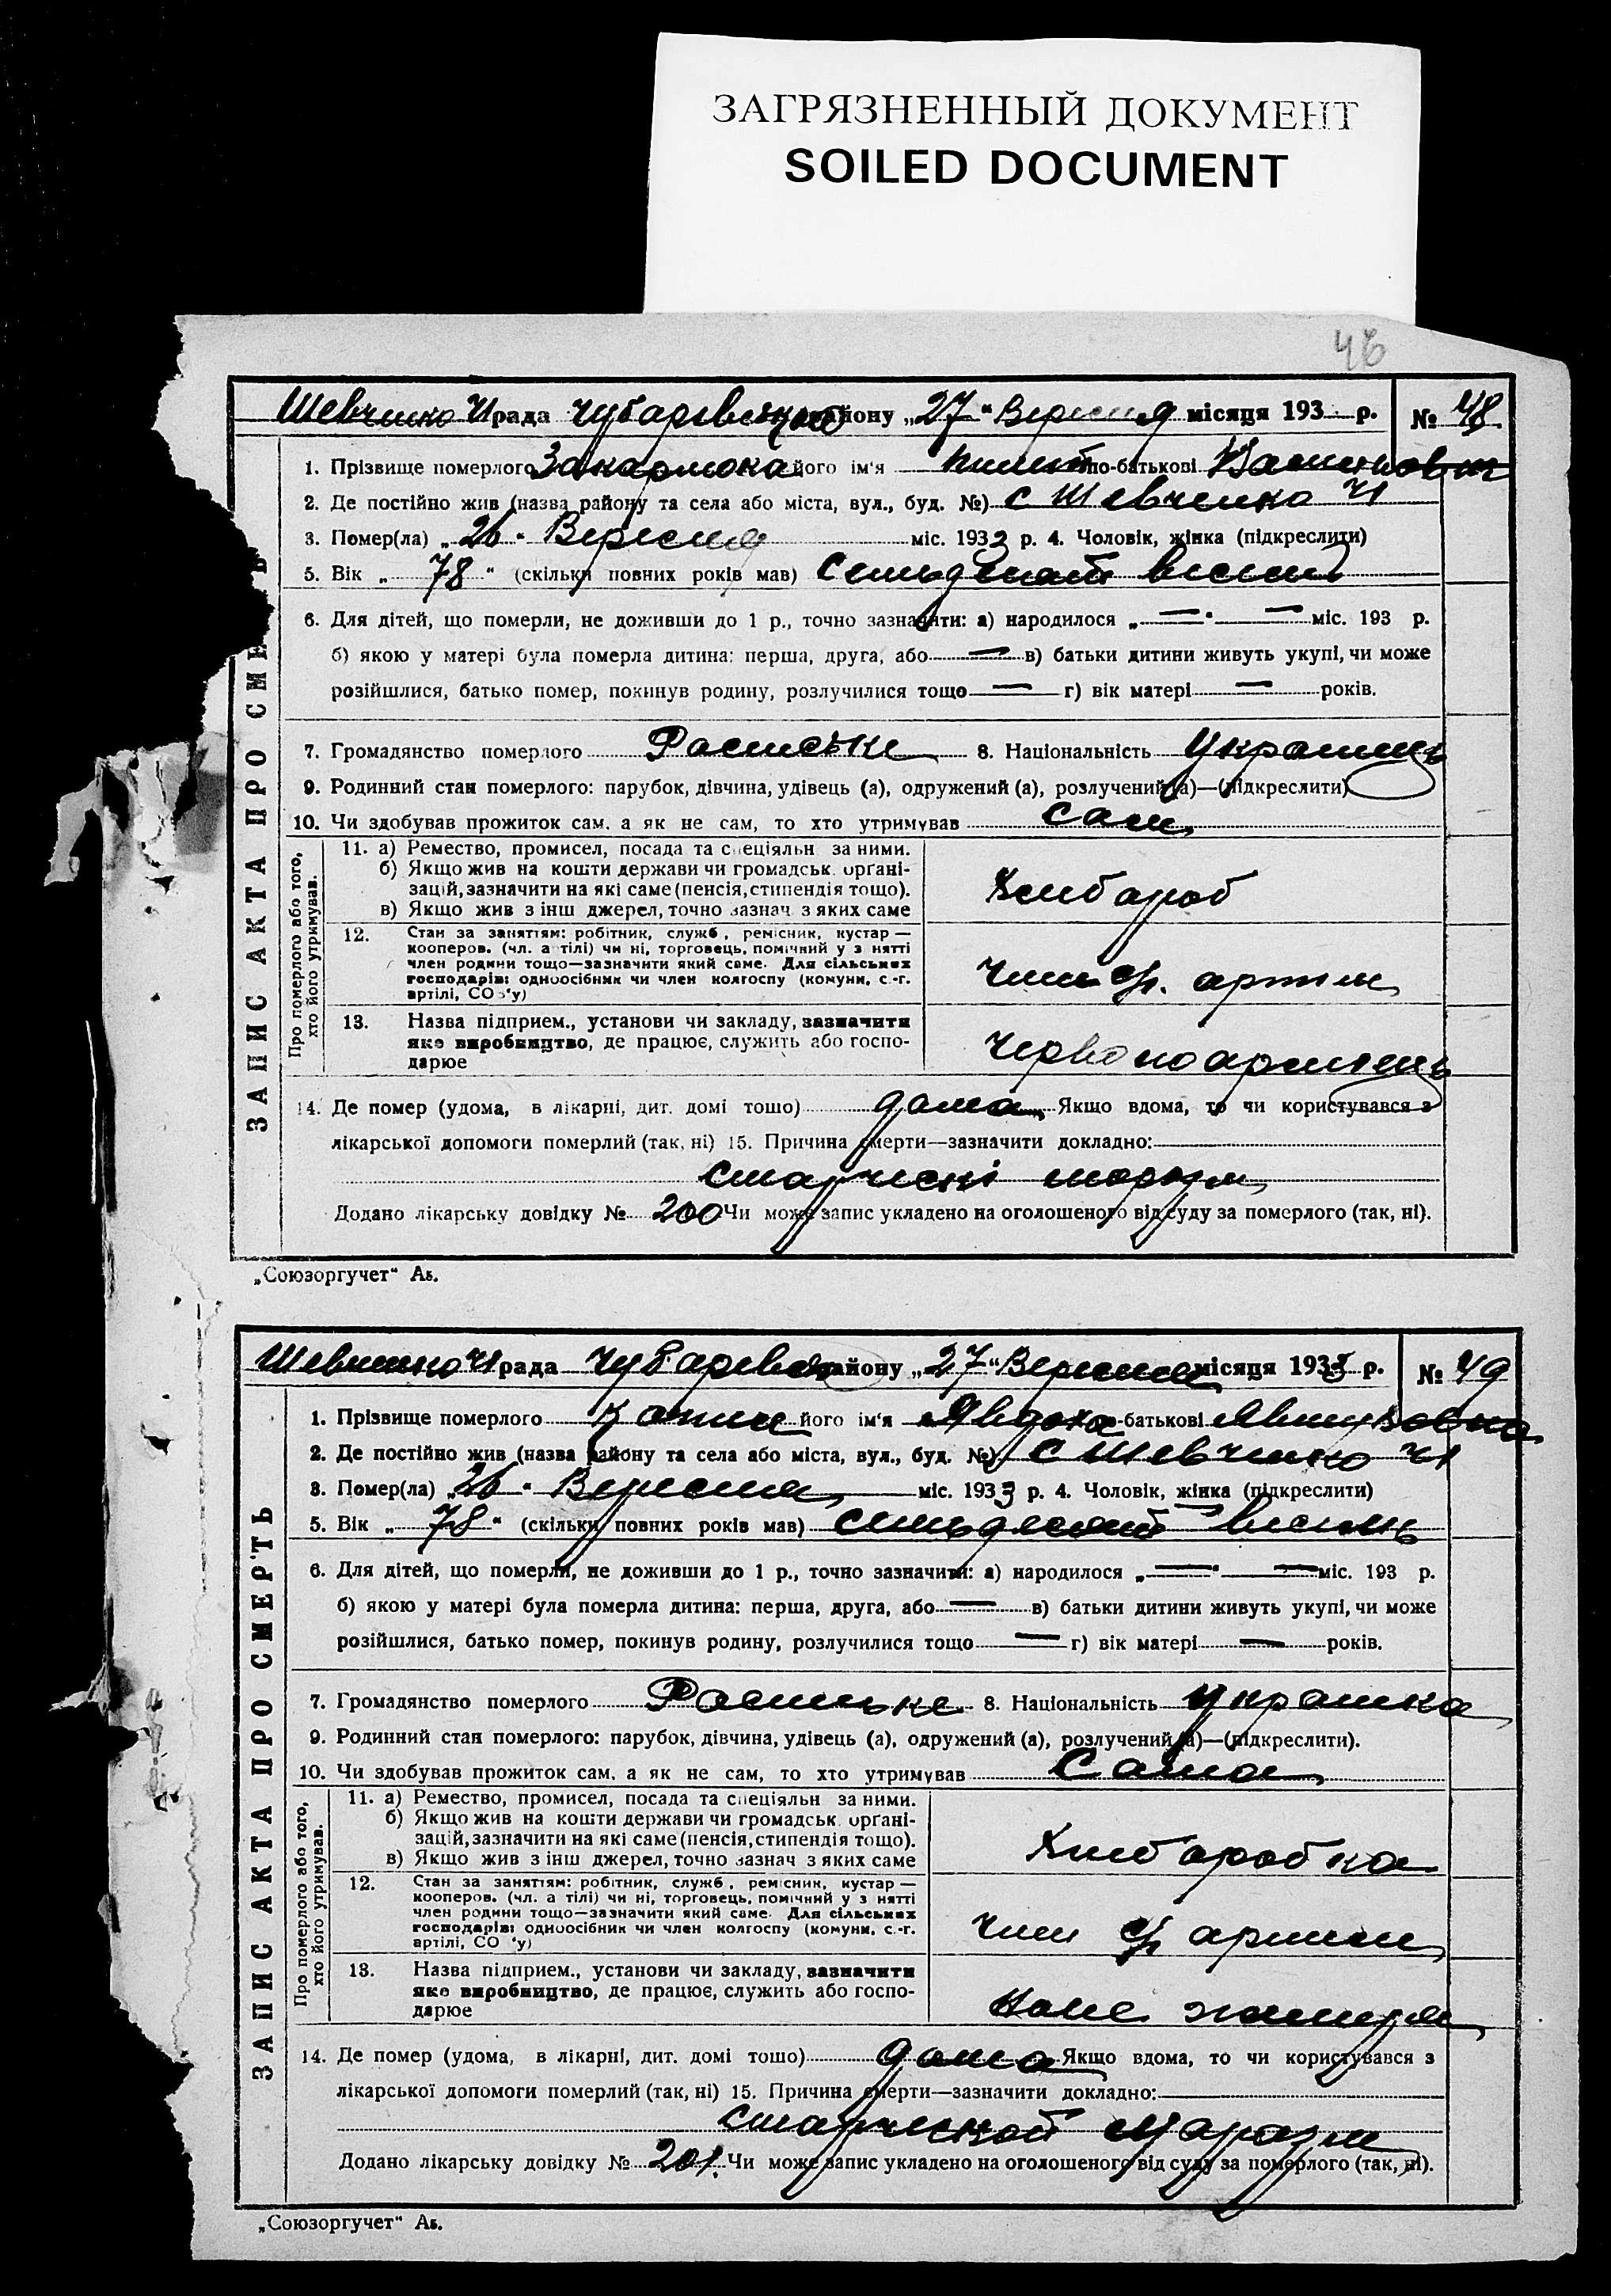 ЗАГРЯЗНЕННЫЙ ДОКУМЕНТ
SOILED DOCUMENT
46
Шевченко ЧІ рада Чубаревского району „27“ Вересня місяця 193 р. № 48
ЗАПИС АКТА ПРО СМЕ Ь
1. Прізвище померлого його ім'я по-батькові
2. Де постійно жив (назва району та села або міста, вул., буд. №) с Шевченко ЧІ
3. Помер(ла) „26“ Вересня міс. 1933 р. 4. Чоловік, жінка (підкреслити)
5. Вік „78“ (скільки повних років мав) Симьдесат висимь
6. Для дітей, що померли, не доживши до 1 р., точно зазначити: а) народилося „—“ — міс. 193 р.
б) якою у матері була померла дитина: перша, друга, або — в) батьки дитини живуть укупі, чи може
розійшлися, батько помер, покинув родину, розлучилися тощо — г) вік матері — років.
7. Громадянство померлого 8. Національність Украинець
9. Родинний стан померлого: парубок, дівчина, удівець (а), одружений (а), розлучений (а)—(підкреслити)
10. Чи здобував прожиток сам, а як не сам, то хто утримував сам
Про померлого або того, хто його утримував.
11. а) Ремество, промисел, посада та спеціяльн за ними.
б) Якщо жив на кошти держави чи громадськ. орґані-
зацій, зазначити на які саме (пенсія, стипендія тощо).
в) Якщо жив з інш джерел, точно зазнач з яких саме
Хлибароб
12. Стан за заняттям: робітник, служб., ремісник, кустар —
кооперов. (чл. а тілі) чи ні, торговець, помічний у з нятті
член родини тощо—зазначити який саме. Для сільських
господарів: одноосібник чи член колгоспу (комуни, с.-г.
артілі, СО з'у)
Член с/г. артили
13. Назва підприєм., установи чи закладу, зазначити
яке виробництво, де працює, служить або госпо-
дарює
Червоноармиець
14. Де помер (удома, в лікарні, дит. домі тошо) дома Якщо вдома, то чи користувався з
лікарської допомоги померлий (так, ні) 15. Причина смерти—зазначити докладно:
маразм
Додано лікарську довідку № 200 Чи може запис укладено на оголошеного від суду за померлого (так, ні).
„Союзоргучет“ Аь.
Шевченко ЧІ рада Чубаревского району „27“ Вересня місяця 1933 р. № 49
ЗАПИС АКТА ПРО СМЕРТЬ
1. Прізвище померлого його ім'я Явдоха по-батькові
2. Де постійно жив (назва району та села або міста, вул., буд. №) с Шевченко ЧІ
3. Помер(ла) „26“ Вересня міс. 1933 р. 4. Чоловік, жінка (підкреслити)
5. Вік „78“ (скільки повних років мав) симьдесят висимь
6. Для дітей, що померли, не доживши до 1 р., точно зазначити: а) народилося „—“ — міс. 193 р.
б) якою у матері була померла дитина: перша, друга, або — в) батьки дитини живуть укупі, чи може
розійшлися, батько помер, покинув родину, розлучилися тощо — г) вік матері — років.
7. Громадянство померлого 8. Національність Украинка
9. Родинний стан померлого: парубок, дівчина, удівець (а), одружений (а), розлучений (а)—(підкреслити).
10. Чи здобував прожиток сам, а як не сам, то хто утримував Сама
Про померлого або того, хто його утримував.
11. а) Ремество, промисел, посада та спеціяльн за ними.
б) Якщо жив на кошти держави чи громадськ. орґані-
зацій, зазначити на які саме (пенсія, стипендія тощо).
в) Якщо жив з інш джерел, точно зазнач з яких саме
Хлибаробка
12. Стан за заняттям: робітник, служб., ремісник, кустар —
кооперов. (чл. а тілі) чи ні, торговець, помічний у з нятті
член родини тощо—зазначити який саме. Для сільських
господарів: одноосібник чи член колгоспу (комуни, с.-г.
артілі, СО 'у)
Член с/г артили
13. Назва підприєм., установи чи закладу, зазначити
яке виробництво, де працює, служить або госпо-
дарює
14. Де помер (удома, в лікарні, дит. домі тошо) дома Якщо вдома, то чи користувався з
лікарської допомоги померлий (так, ні) 15. Причина смерти—зазначити докладно:
старческой Маразм
Додано лікарську довідку № 201. Чи може запис укладено на оголошеного від суду за померлого (так, ні).
„Союзоргучет“ Аь.